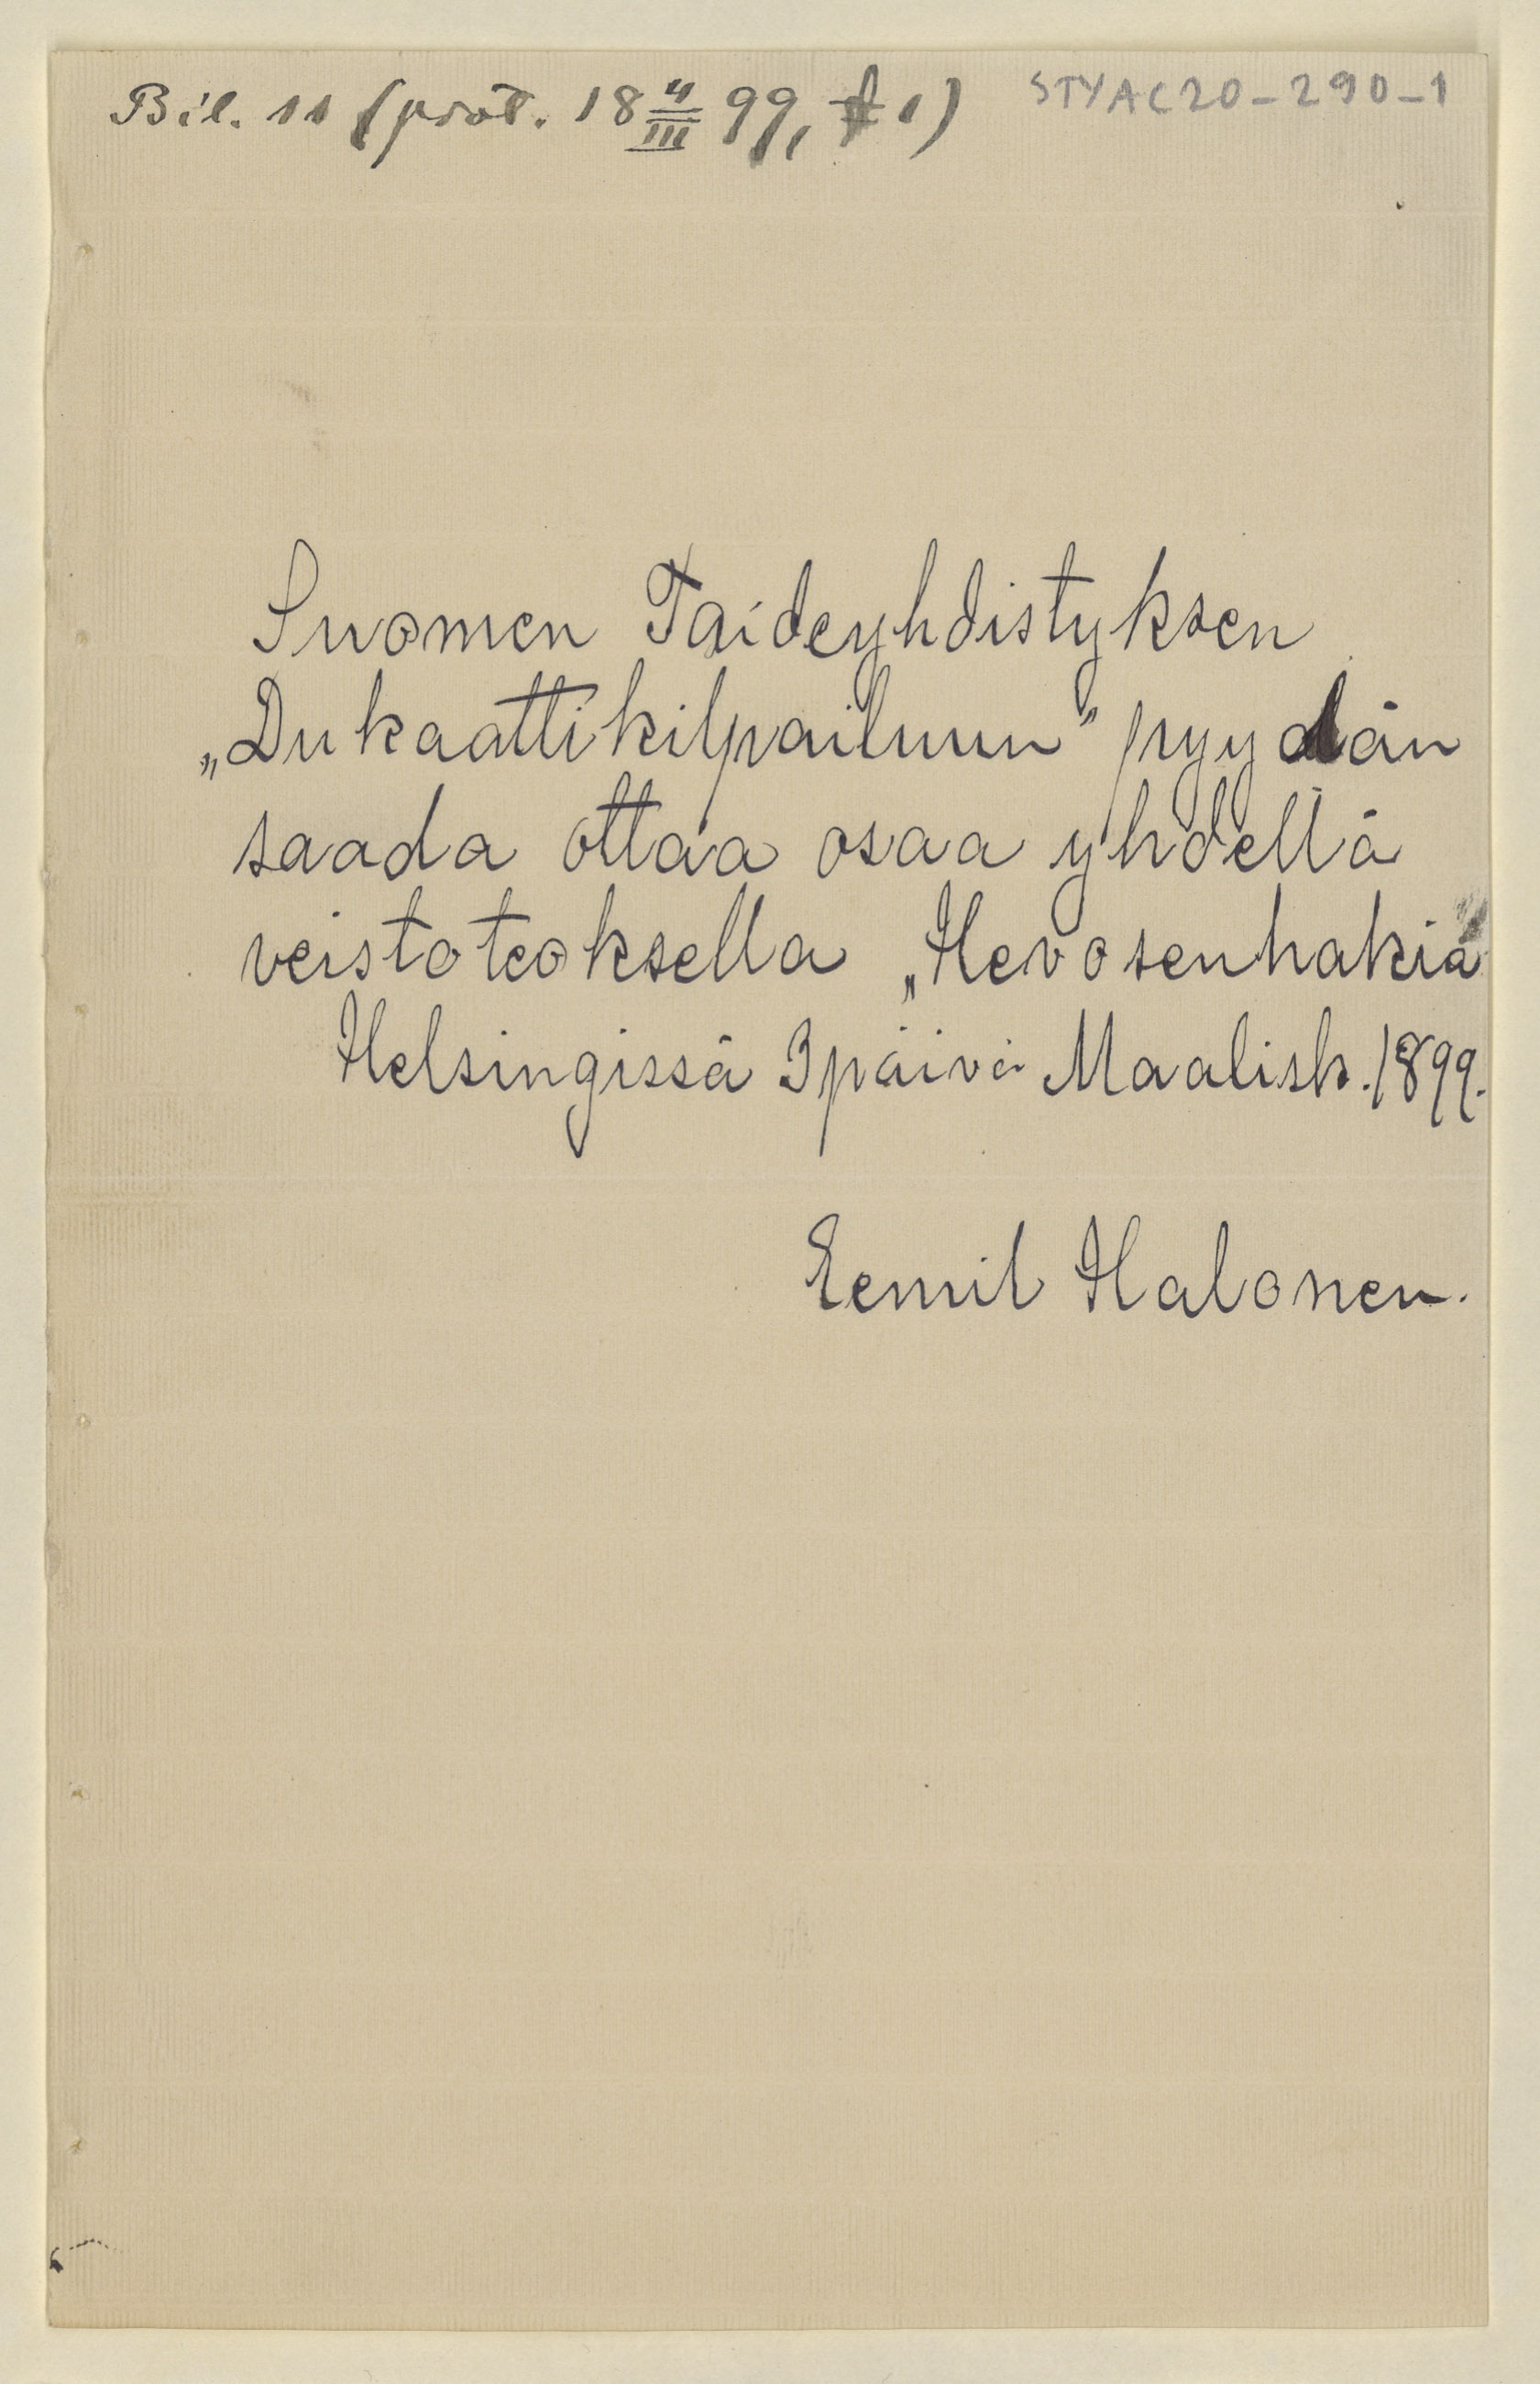 Bil. 11 (prot. 18 4/III 99, # 1) STYAC20-290-1
Suomen Taideyhdistyksen
„Dukaattikilpailuun" pyydän
saada ottaa osaa yhdellä
veistoteoksella „Hevosenhakia
Helsingissä 3 päivä Maalisk. 1899.
Eemil Halonen.